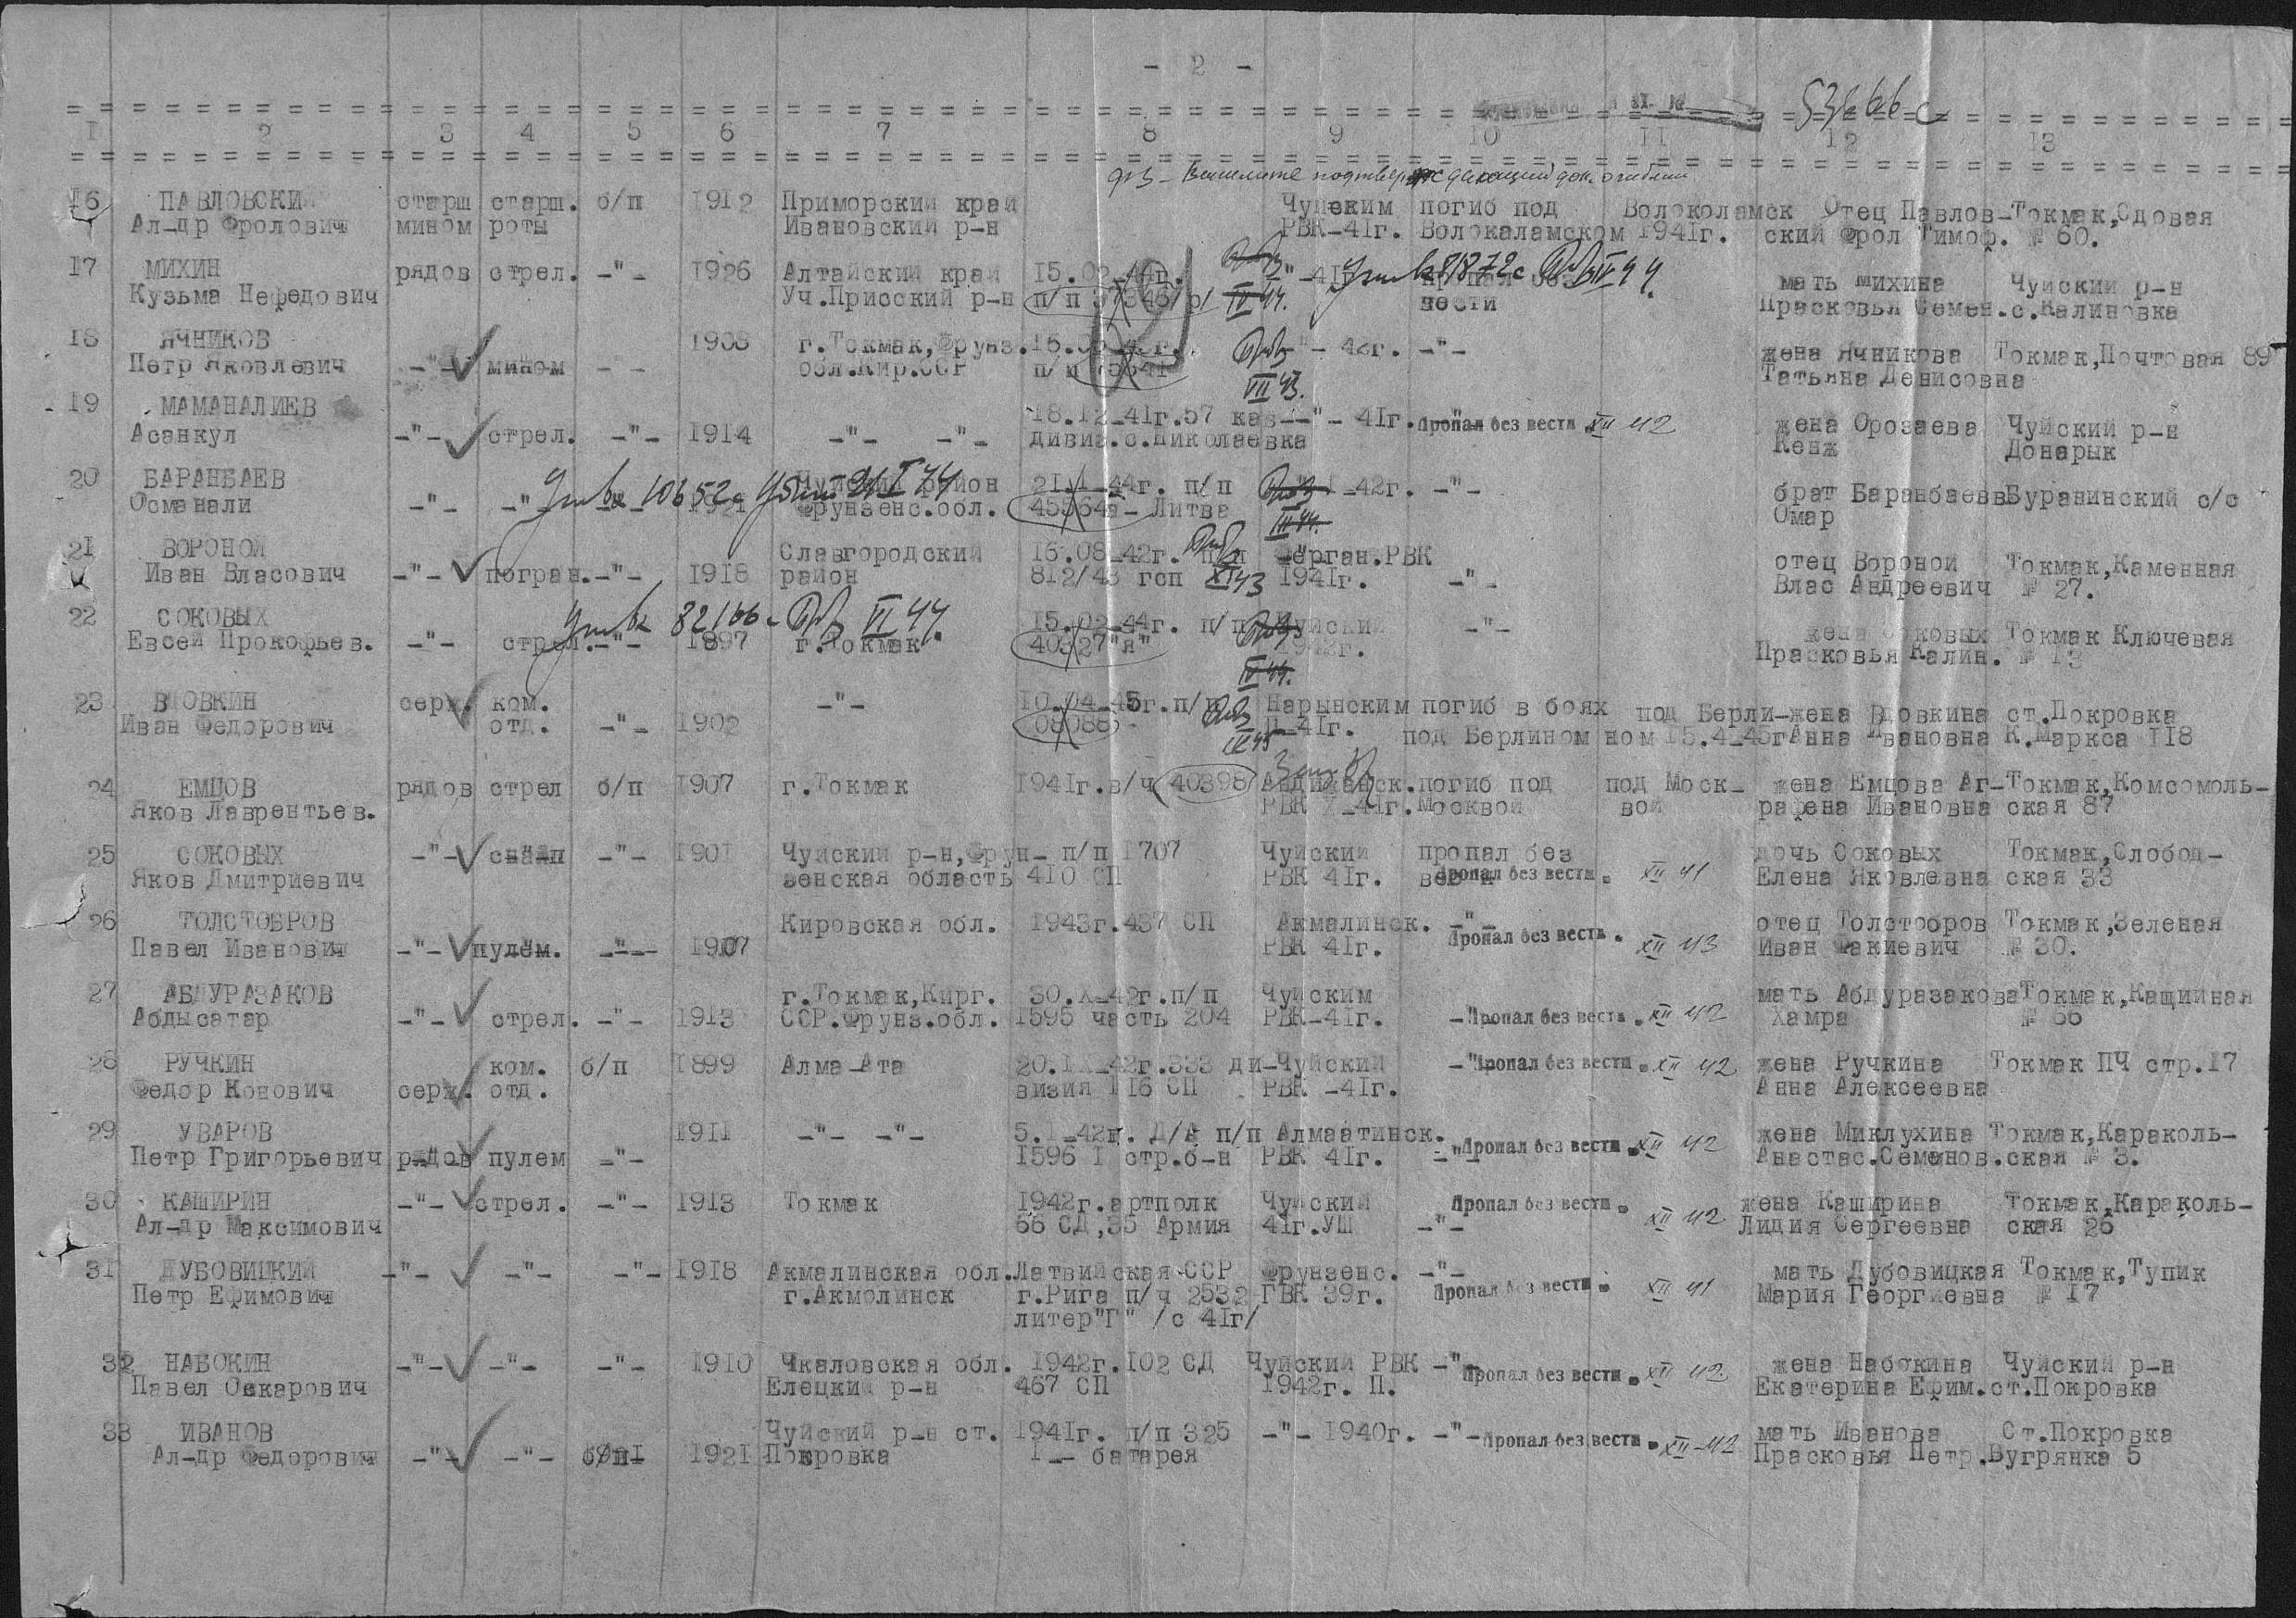 - 2 -
53666с
1 2 3 4 5 6 7 8 9 10 11 12 13
Вышлите подтверждающий док. о гибели
16 ПАВЛОВСКИЙ старш старш. б/п 1912 Приморский край Чуйским погиб под Волоколамск Отец Павлов- Токмак,Сдовая
Ал-др Фролович мином роты Ивановский р-н РВК-41г. Волокаламском 1941г. ский Фрол Тимоф. № 60.
17 МИХИН рядов стрел. -"- 1926 Алтайский край 15.02-44г. -"-41г. Учтв 81872с VI 44 мать Михина Чуйский р-н
Кузьма Нефедович Уч.Присский р-н п/п IV 44. вести Прасковья Семен. с.Калиновка
18 ЯЧНИКОВ 1908 г.Токмак,Фрунз. -"- 42г. -"- жена Ячникова Токмак,Почтовая 89
Петр Яковлевич -"- мином - - обл.Кир.ССР п/п VII 43. Татьяна Денисовна
19 МАМАНАЛИЕВ 18.12-41г.57 кав- -"- 41г. Пропал без вести XII 42 жена Орозаева Чуйский р-н
Асанкул -"- стрел. -"- 1914 -"- -"- дивиз.с.Николаевка Кенж Донарык
20 БАРАНБАЕВ Учтв 10652с Чуйский район 21.1-44г. п/п -42г. -"- брат Баранбаев Буранинский с/с
Османали -"- -"- -"- 1921 Фрунзенс.обл. 45564я- Литва III 44. Омар
21 ВОРОНОЙ Славгородский 16.08-42г. п/п Ферган.РВК отец Вороной Токмак,Каменная
Иван Власович -"- погран. -"- 1918 район 812/43 гсп XI 43 1941г. -"- Влас Андреевич № 27.
22 СОКОВЫХ Учтв 82166с VI 44. 15.02-44г. п/п Чуйский -"- жена Соковых Токмак Ключевая
Евсей Прокофьев. -"- стрел. -"- 1897 г.Токмак 40327"я" 1942г. Прасковья Калин. № 13
IV 44.
23 ВДОВКИН серж. ком. -"- 10.04-45г.п/п Нарынским погиб в боях под Берли- жена Вдовкина ст.Покровка
Иван Федорович отд. -"- 1902 08088 П-41г. под Берлином ном 15.4-45г Анна Ивановна К.Маркса 118
24 ЕМЦОВ рядов стрел б/п 1907 г.Токмак 1941г.в/ч 40398 Андижанск. погиб под под Моск- жена Емцова Аг- Токмак,Комсомоль-
Яков Лаврентьев. РВК X-41г. Москвой вой рафена Ивановна ская 87
25 СОКОВЫХ -"- -"- 1901 Чуйский р-н,Фрун- п/п 1707 Чуйский пропал без дочь Соковых Токмак,Слобод-
Яков Дмитриевич зенская область 410 СП РВК 41г. Пропал без вести. XII 41 Елена Яковлевна ская 33
26 ТОЛСТОБРОВ Кировская обл. 1943г.437 СП Акмалинск. -"- отец Толстобров Токмак,Зеленая
Павел Иванович -"- пулем. -"- 1907 РВК 41г. Пропал без вести. XII 43 Иван Факиевич № 30.
27 АБДУРАЗАКОВ г.Токмак,Кирг. 30.X-42г.п/п Чуйским мать Абдуразакова Токмак,Кащийная
Абдысатар -"- стрел. -"- 1913 ССР.Фрунз.обл. 1595 часть 204 РВК-41г. -"- Пропал без вести. XII 42 Хамра № 66
28 РУЧКИН ком. б/п 1899 Алма-Ата 20.IX-42г.333 ди- Чуйский -"- Пропал без вести. XII 42 жена Ручкина Токмак ПЧ стр.17
Федор Конович серж. отд. визия 116 СП РВК -41г. Анна Алексеевна
29 УВАРОВ 1911 -"- -"- 5.1-42г. Д/А п/п Алмаатинск. Пропал без вести. XII 42 жена Миклухина Токмак,Караколь-
Петр Григорьевич рядов пулем -"- 1596 1 стр.б-н РВК 41г. -"- Анастас.Семенов. ская № 3.
30 КАШИРИН -"- стрел. -"- 1913 Токмак 1942г.артполк Чуйский Пропал без вести. жена Каширина Токмак,Караколь-
Ал-др Максимович 66 СД,35 Армия 41г.УШ -"- XII 42 Лидия Сергеевна ская 26
31 ДУБОВИЦКИЙ -"- -"- -"- 1918 Акмалинская обл. Латвийская ССР Фрунзенс. -"- мать Дубовицкая Токмак,Тупик
Петр Ефимович г.Акмолинск г.Рига п/ч 2532 ГВК 39г. Пропал без вести. XII 41 Мария Георгиевна № 17
литер"Г" /с 41г/
32 НАБОКИН -"- -"- -"- 1910 Чкаловская обл. 1942г.102 СД Чуйский РВК -"- Пропал без вести. XII 42 жена Набокина Чуйский р-н
Павел Оскарович Елецкий р-н 467 СП 1942г. П. Екатерина Ефим. ст.Покровка
33 ИВАНОВ Чуйский р-н ст. 1941г. п/п 325 -"- 1940г. -"- Пропал без вести. XII-42 мать Иванова Ст.Покровка
Ал-др Федорович -"- -"- 1921 Покровка 1 - батарея Прасковья Петр. Вугрянка 5